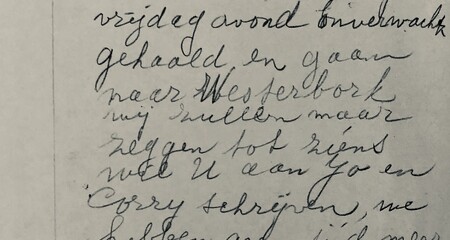 vrijdag avond onverwacht
gehaald, en gaan
naar Westerbork
wij zullen maar
zeggen tot ziens
wil U aan Jo en
Corry schrijven, we
hebben